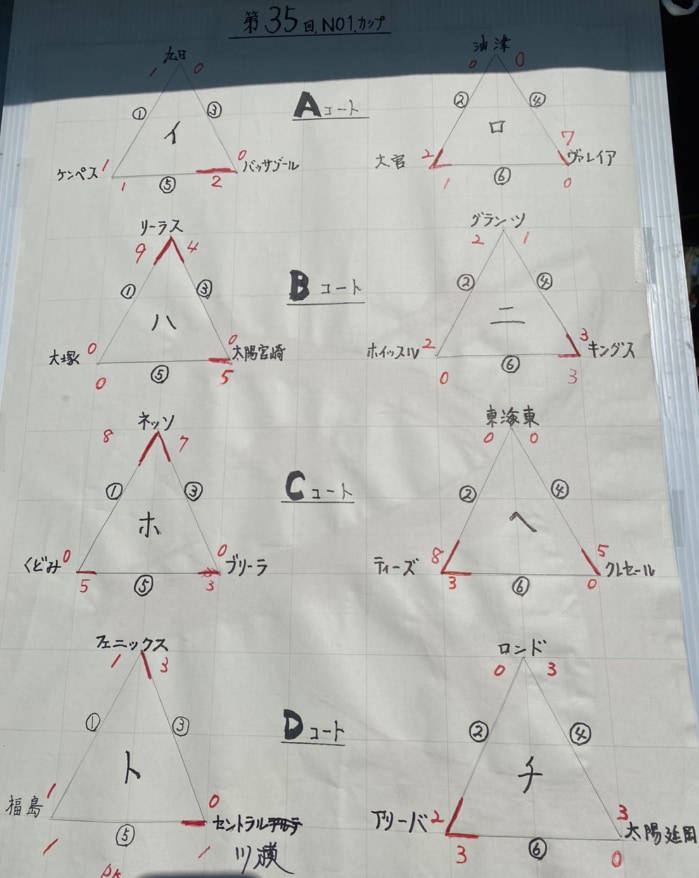 第35回 NO1.カップ
Aコート
広田
1 0
① ③
イ
ケンペス 1 0 バッサゾール
1 ⑤ 2
油津
0 0
② ④
ロ
大宮 2 7 ヴァレイア
1 ⑥ 0
Bコート
リーラス
9 4
① ③
ハ
大塚 0 0 太陽宮崎
0 ⑤ 5
グランツ
2 1
② ④
ニ
ホイッスル 2 3 キングス
0 ⑥ 3
Cコート
ネッソ
8 7
① ③
ホ
くどみ 0 0 ブリーラ
5 ⑤ 3
東海東
0 0
② ④
ヘ
ティーズ 8 5 クレセール
3 ⑥ 0
Dコート
フェニックス
1 3
① ③
ト
福島 1 0 セントラル
川濵
1 ⑤ 1
PK
ロンド
0 3
② ④
チ
アリーバ 2 3 太陽延岡
3 ⑥ 0